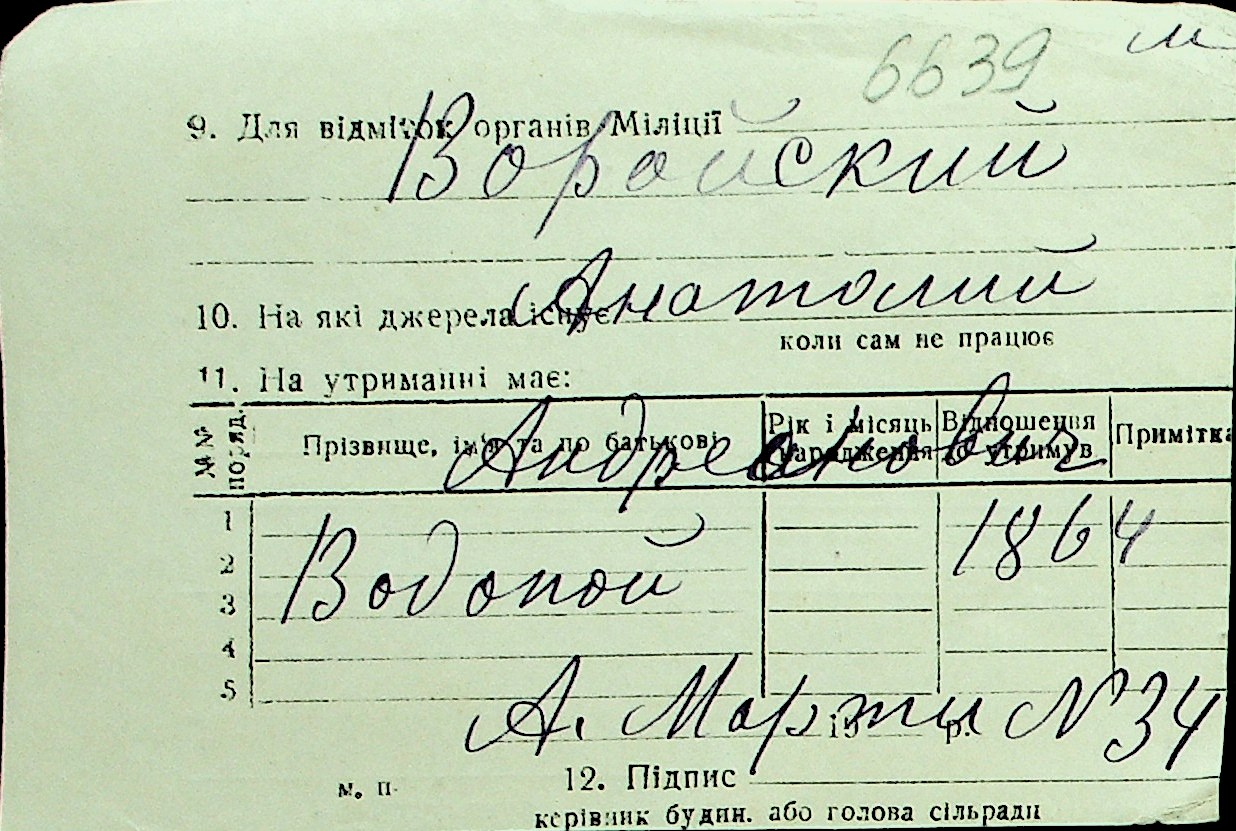 6639 м
9. Для відміток органів Міліції
Ворайский
Анатолий
10. На які джерела існує
коли сам не працює
11. На утриманні має:
№№ поряд. Прізвище, ім'я та по батькові Рік і місяць народження Відношення до утримув Примітка
Андреанович
1 1864
2 Водопой
3
4
5
А. Марти N 34
19 р.
м. п. 12. Підпис
керівник будин. або голова сільради